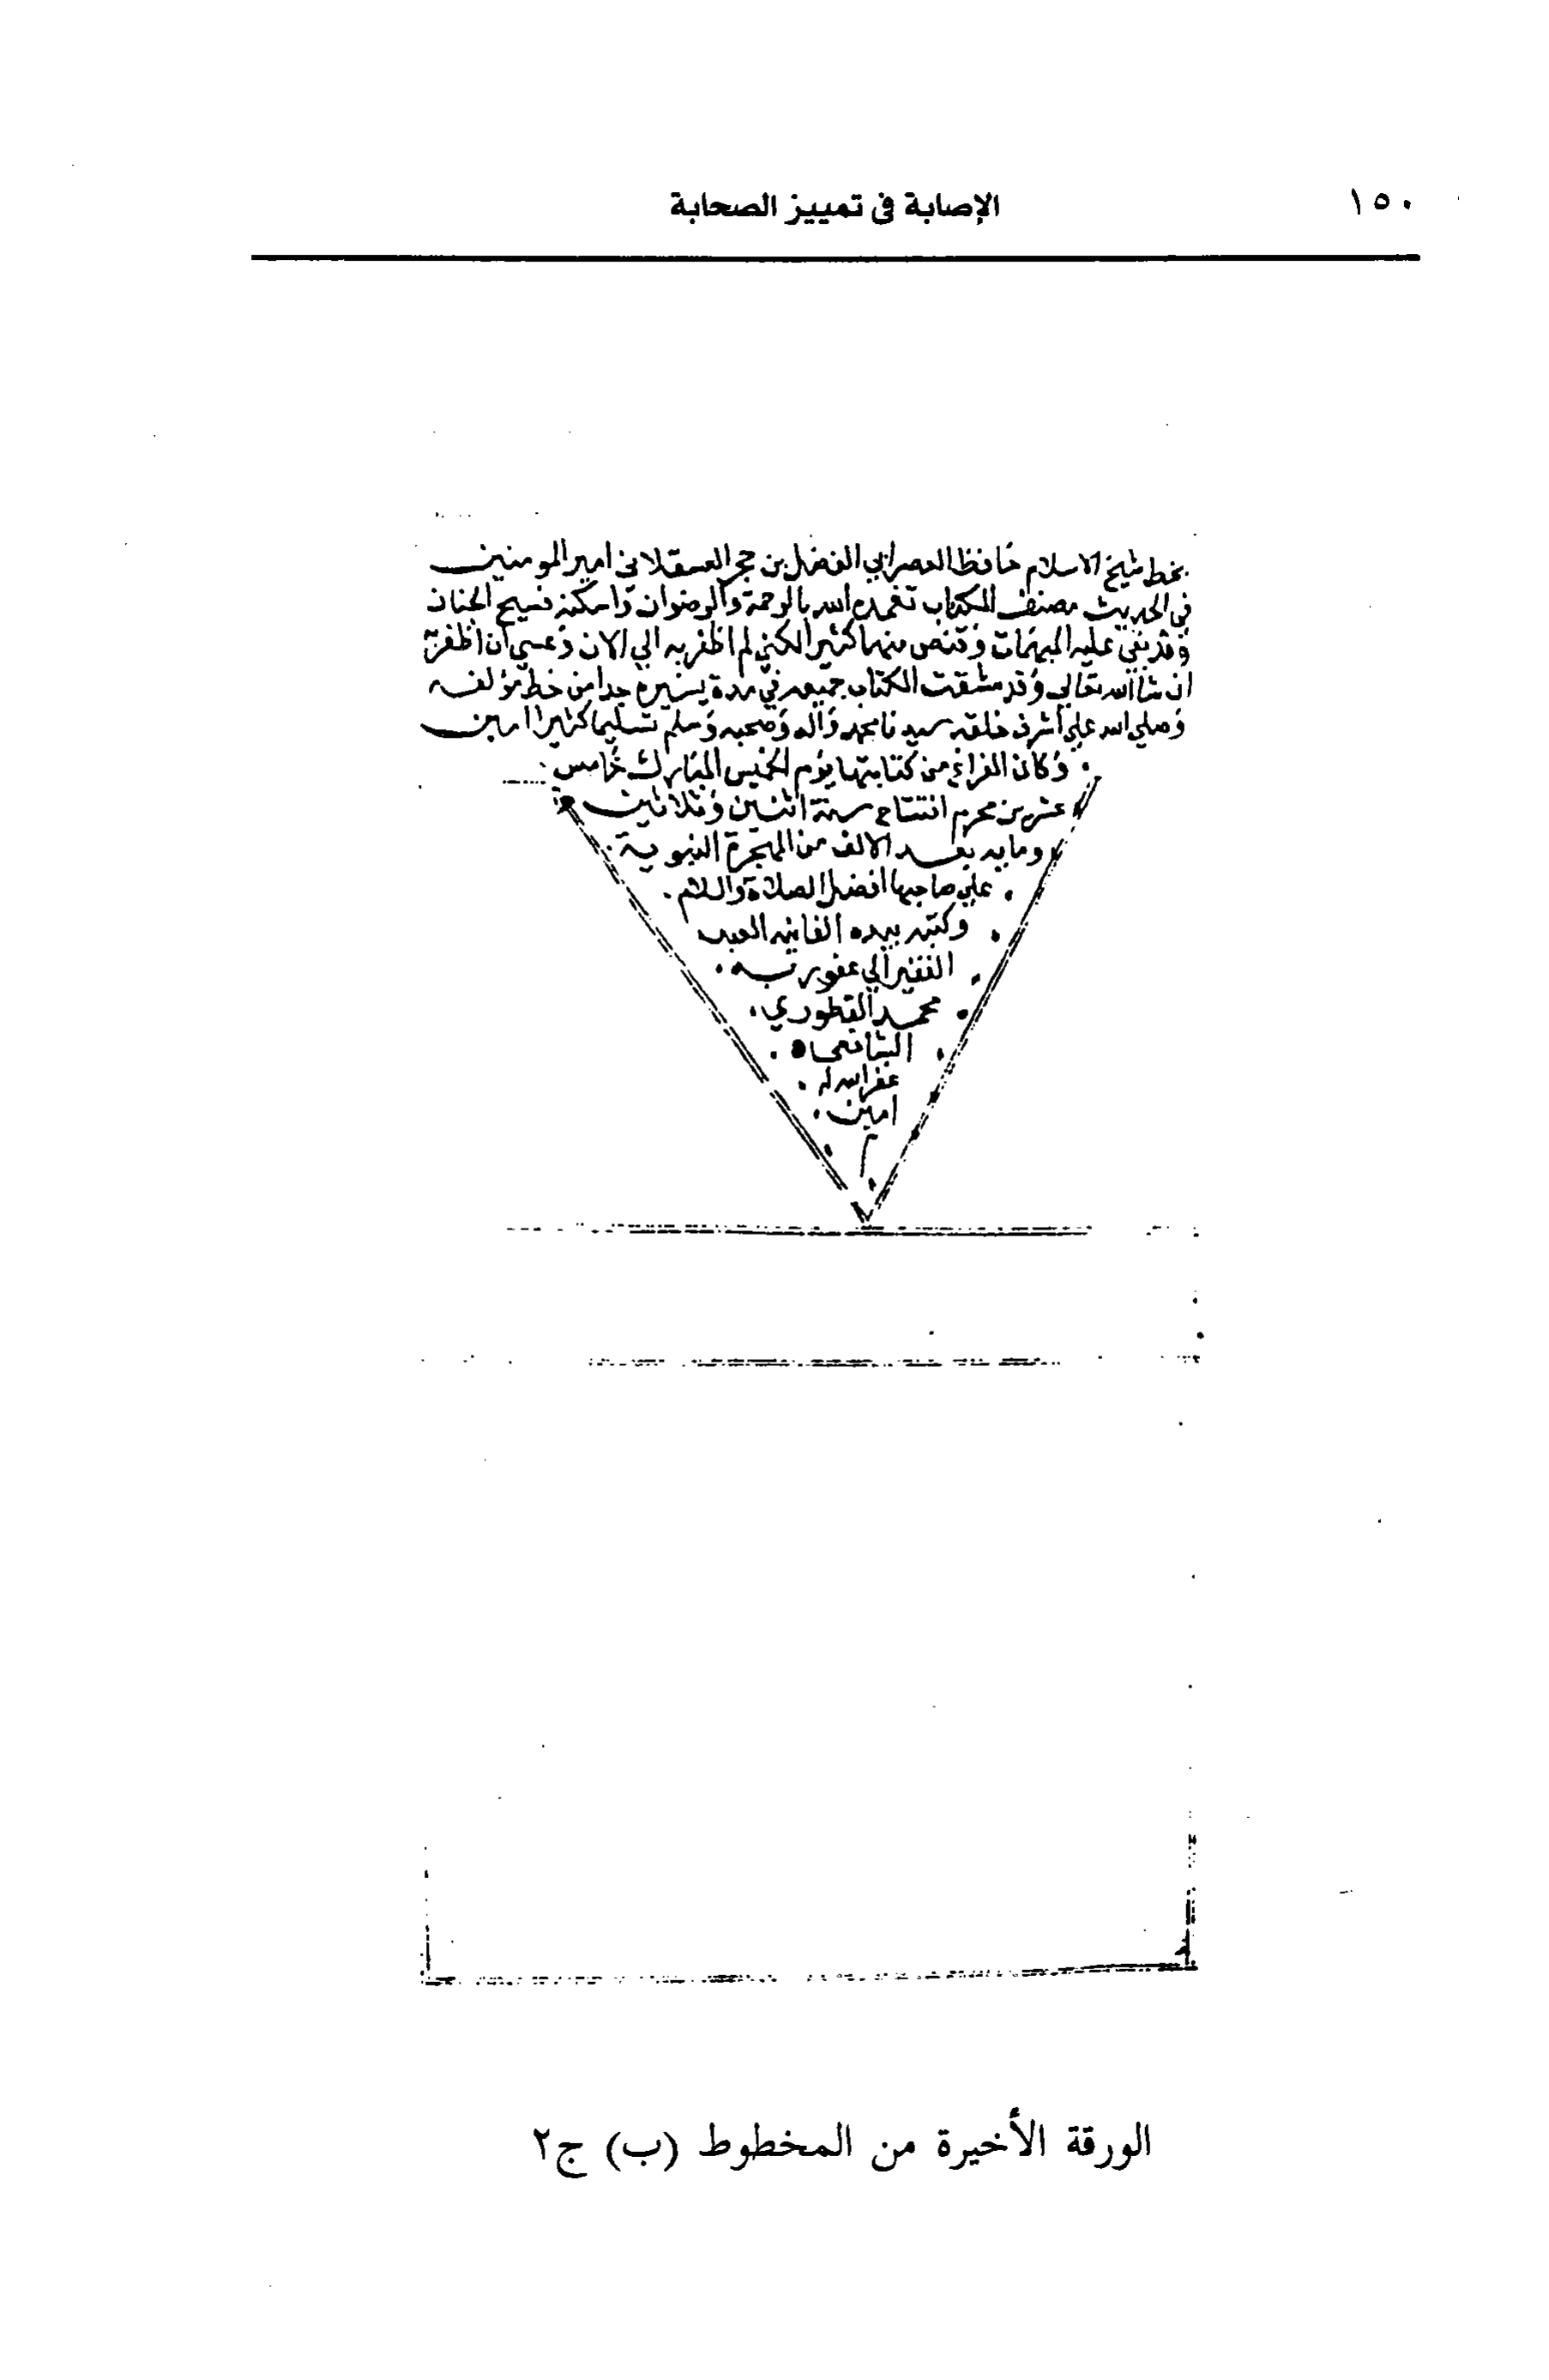 ١٥٠
الإصابة في تمييز الصحابة
بخط شيخ الاسلام حافظ العصر ابي الفضل بن حجر العسقلاني امير المومنين
في الحديث مصنف الكتاب تغمده الله بالرحمة والرضوان واسكنه فسيح الجنان
وقد بقي عليه المبهمات وتنص منها كثيرا لكني لم اظفر به الي الان وعسي ان اظفر به
ان شا الله تعالي وقد مشقت الكتاب جميعه في مدة يسيرة جدا من خط مؤلفه
وصلي الله علي اشرف خلقه سيدنا محمد واله وصحبه وسلم تسليما كثيرا امين
وكان الفراغ من كتابتها يوم الخميس المبارك خامس
عشرين محرم افتتاح سنة اثنين وثلاثين
ومايه بعد الالف من الهجرة النبوية
علي صاحبها افضل الصلاة والسلام
وكتبه بيده الفانيه العبد
الفقير الي عفو ربه
محمد القطوري
الشافعي
غفر الله له
امين
م
الورقة الأخيرة من المخطوط (ب) ج٢